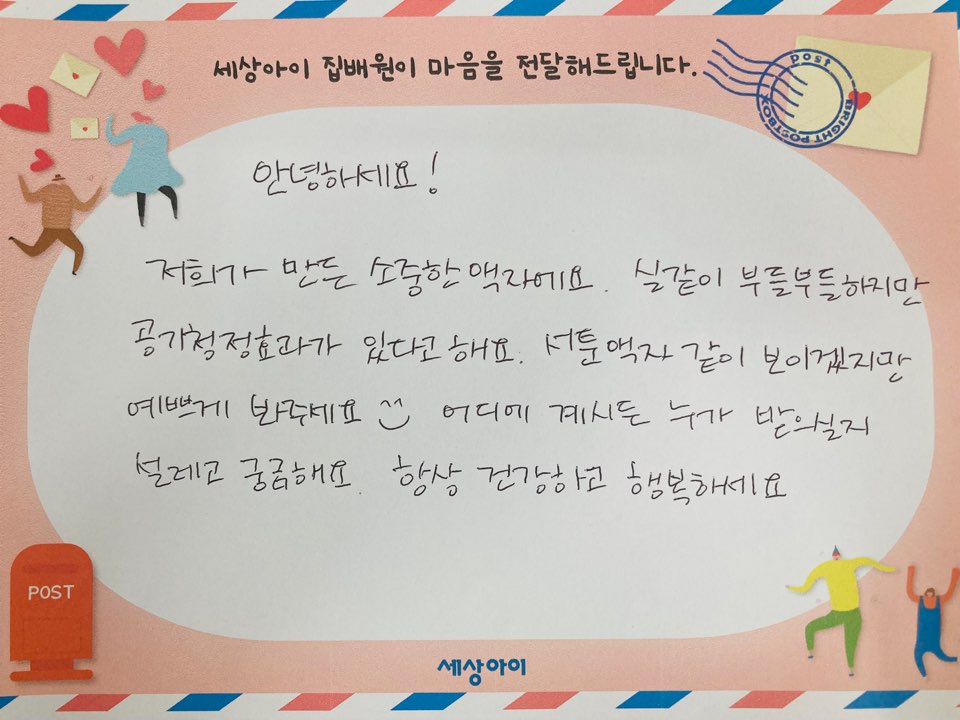 세상아이 집배원이 마음을 전달해드립니다.
post
BRIGHT POSTBOX
안녕하세요!
저희가 만든 소중한 액자에요. 실같이 부들부들하지만
공기청정효과가 있다고 해요. 서툰액자 같이 보이겠지만
예쁘게 봐주세요 ^^ 어디에 계시든 누가 받으실지
설레고 궁금해요. 항상 건강하고 행복하세요
POST
세상아이